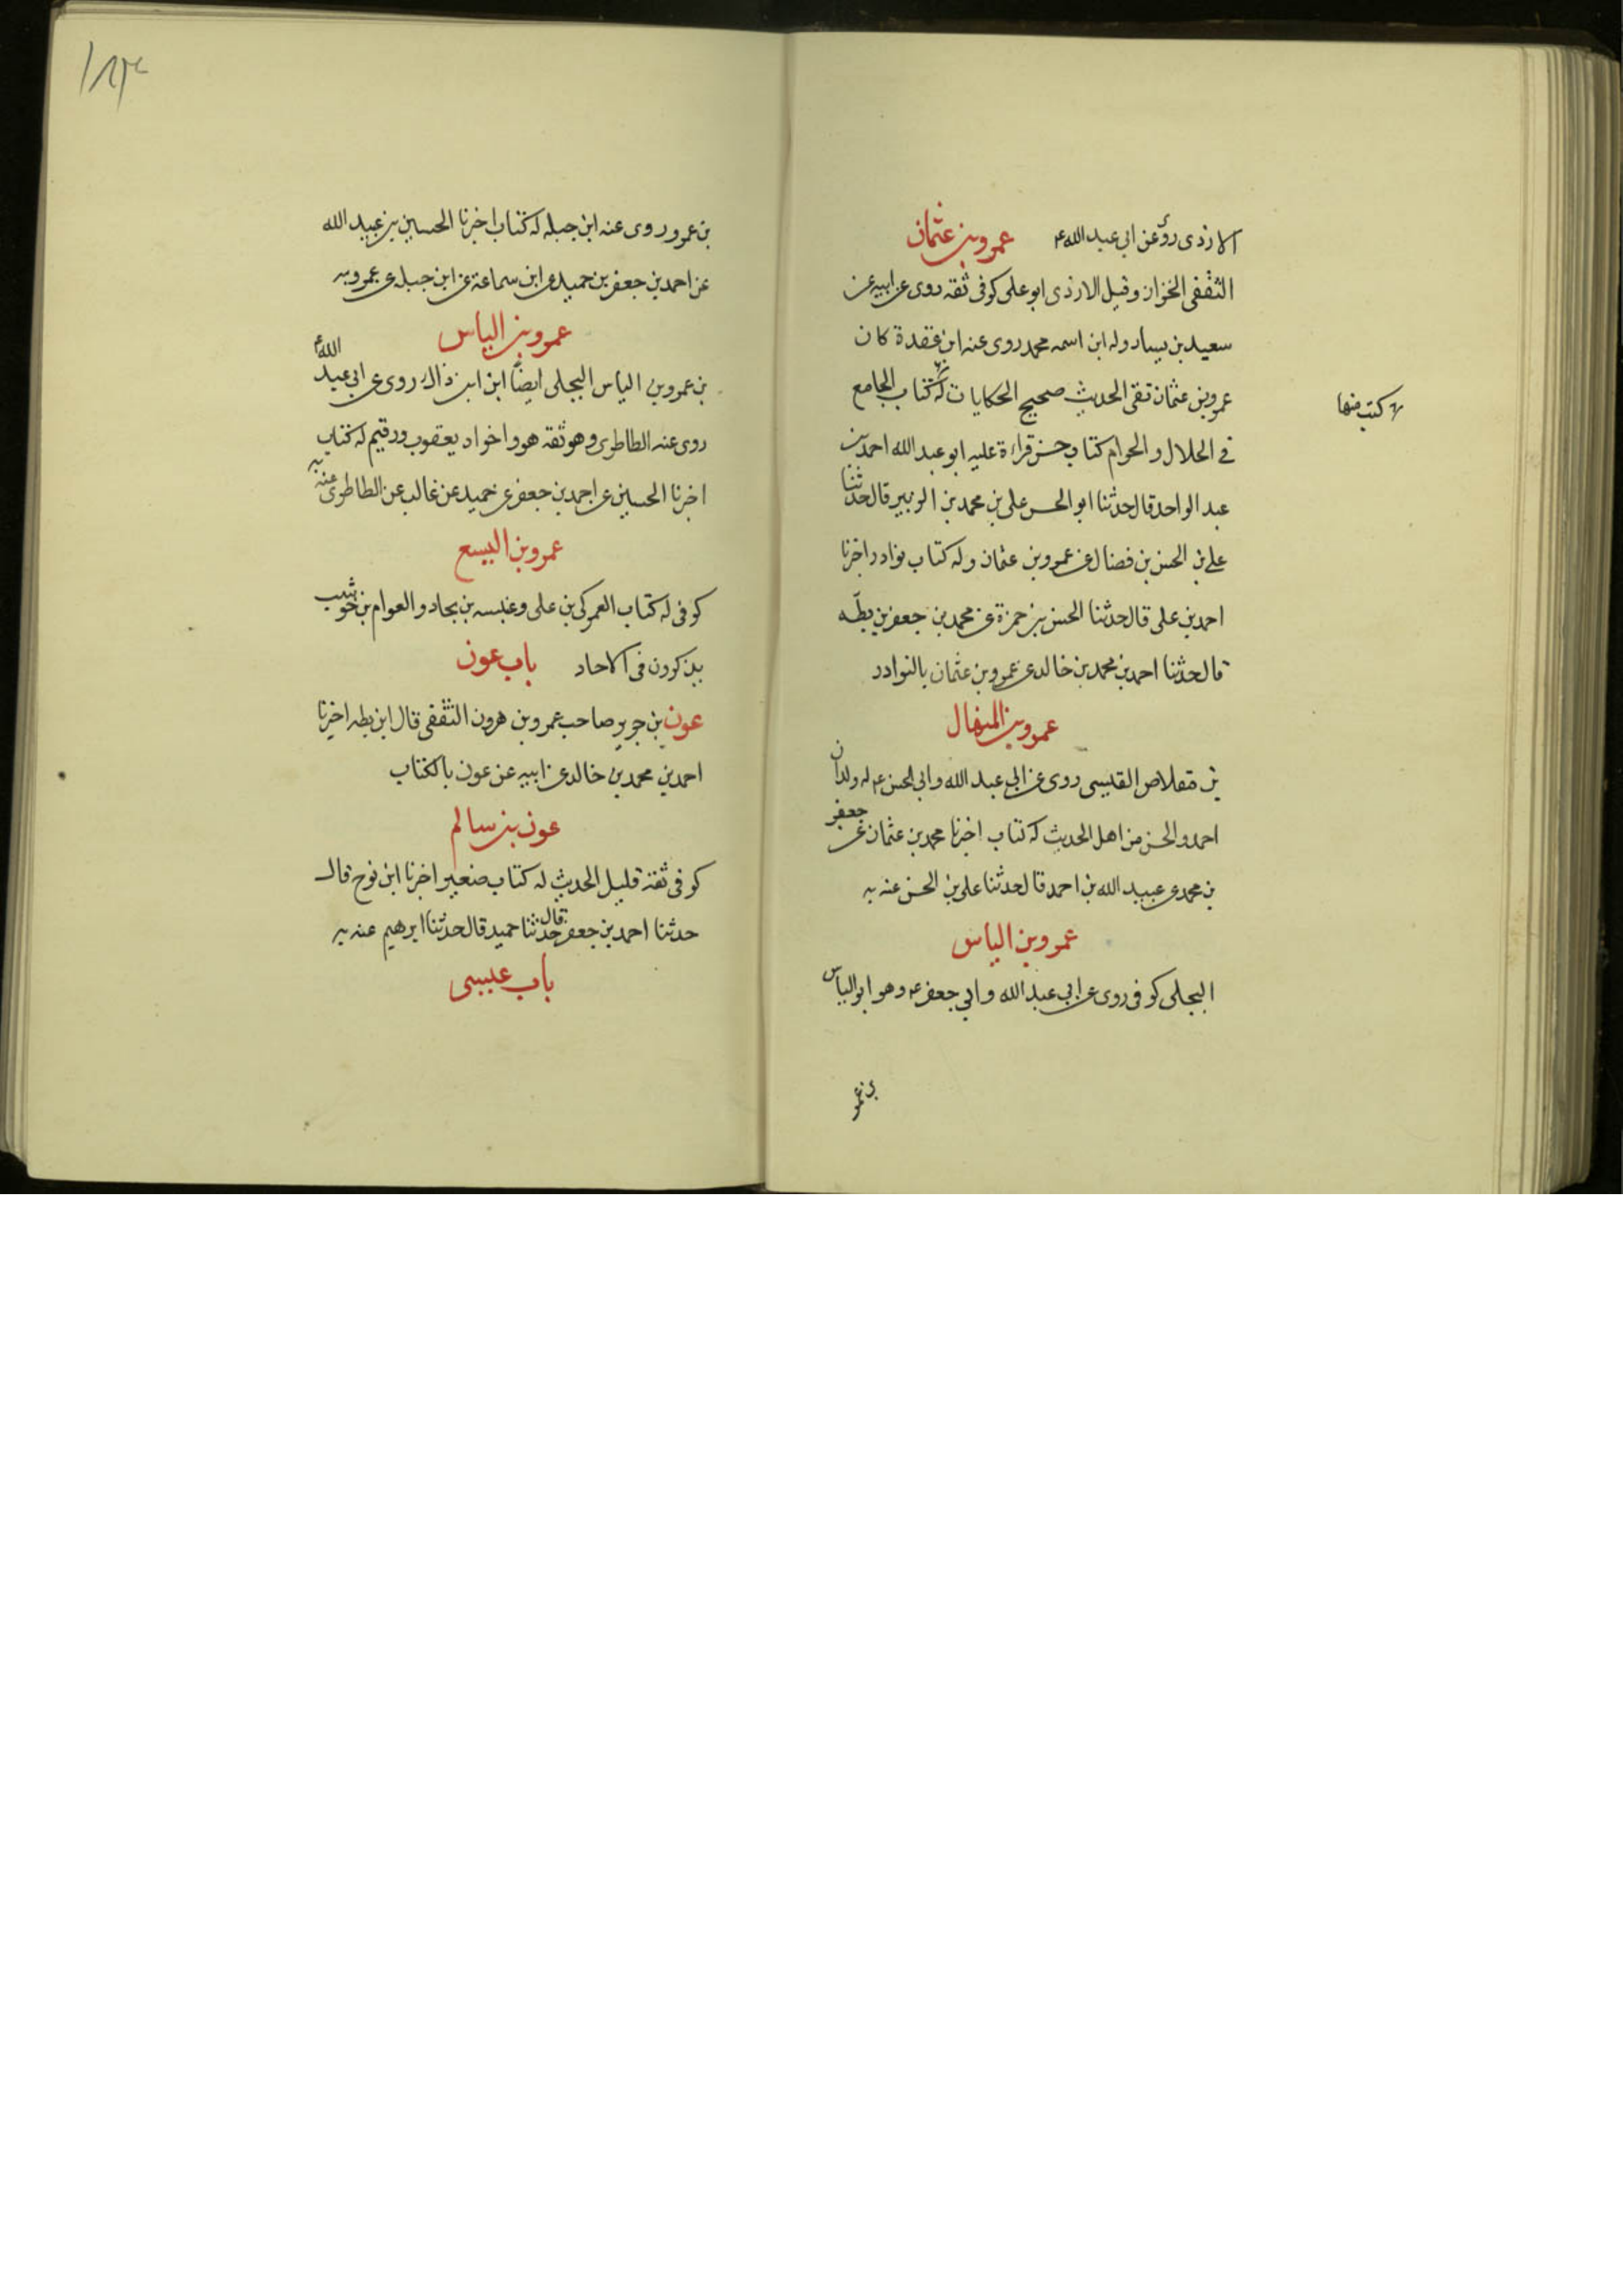 الازدى روى عن ابى عبد الله ع عمرو بن عثمان
الثقفى الخزاز وقيل الازدى ابو على كوفى ثقه روى عن ابيه عن
سعيد بن يسار وله ابن اسمه محمد روى عنه ابن عقدة كان
عمرو بن عثمان نقى الحديث صحيح الحكايات له كتاب الجامع
له كتب منها
فى الحلال والحرام كتاب حسن قراءة عليه ابو عبد الله احمد بن
عبد الواحد قال حدثنا ابو الحسن على بن محمد بن الزبير قال حدثنا
على بن الحسن بن فضال عن عمرو بن عثمان وله كتاب نوادر اخبرنا
احمد بن على قال حدثنا الحسن بن حمزة عن محمد بن جعفر بن بطّه
قال حدثنا احمد بن محمد بن خالد عن عمرو بن عثمان بالنوادر
عمرو بن المنهال
بن مقلاص القيسى روى عن ابى عبد الله وابى الحسن ع له ولدان
احمد والحسن من اهل الحديث له كتاب اخبرنا محمد بن عثمان عن جعفر
بن محمد عن عبيد الله بن احمد قال حدثنا على بن الحسن عنه به
عمرو بن الياس
البجلى كوفى روى عن ابى عبد الله وابى جعفر ع وهو ابو الياس
بن عمر
بن عمرو روى عنه ابن جبله له كتاب اخبرنا الحسين بن عبيد الله
عن احمد بن جعفر بن حميد عن ابن سماعة عن ابن جبله عن عمرو به
عمرو بن الياس
بن عمرو بن الياس البجلى ايضاً ابن ابن ذاك روى عن ابى عبد الله ع
روى عنه الطاطرى وهو ثقه هو واخواه يعقوب ورقيم له كتاب
اخبرنا الحسين عن احمد بن جعفر عن حميد عن غالب عن الطاطرى عنه به
عمرو بن اليسع
كوفى له كتاب العمركى بن على وعنبسه بن بجاد والعوام بن حوشب
يذكرون فى الاحاد باب عون
عون بن جرير صاحب عمرو بن هرون الثقفى قال ابن بطه اخبرنا
احمد بن محمد بن خالد عن ابيه عن عون بالكتاب
عون بن سالم
كوفى ثقة قليل الحديث له كتاب صغير اخبرنا ابن نوح قال
حدثنا احمد بن جعفر قال حدثنا حميد قال حدثنا ابرهيم عنه به
باب عيسى